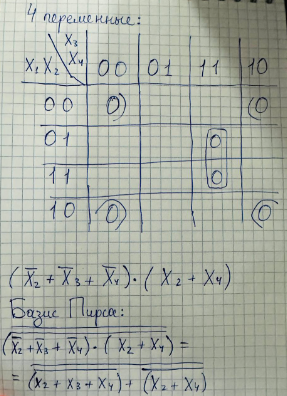 4 переменные:
X₃
X₄
X₁X₂ 00 01 11 10
00 0 0
01 0
11 0
10 0 0
(X̄₂ + X̄₃ + X̄₄) · (X₂ + X₄)
Базис Пирса:
(X̄₂+X̄₃+X̄₄) · (X₂ + X₄) =
= (X̄₂ + X₃ + X₄) + (X₂ + X₄)